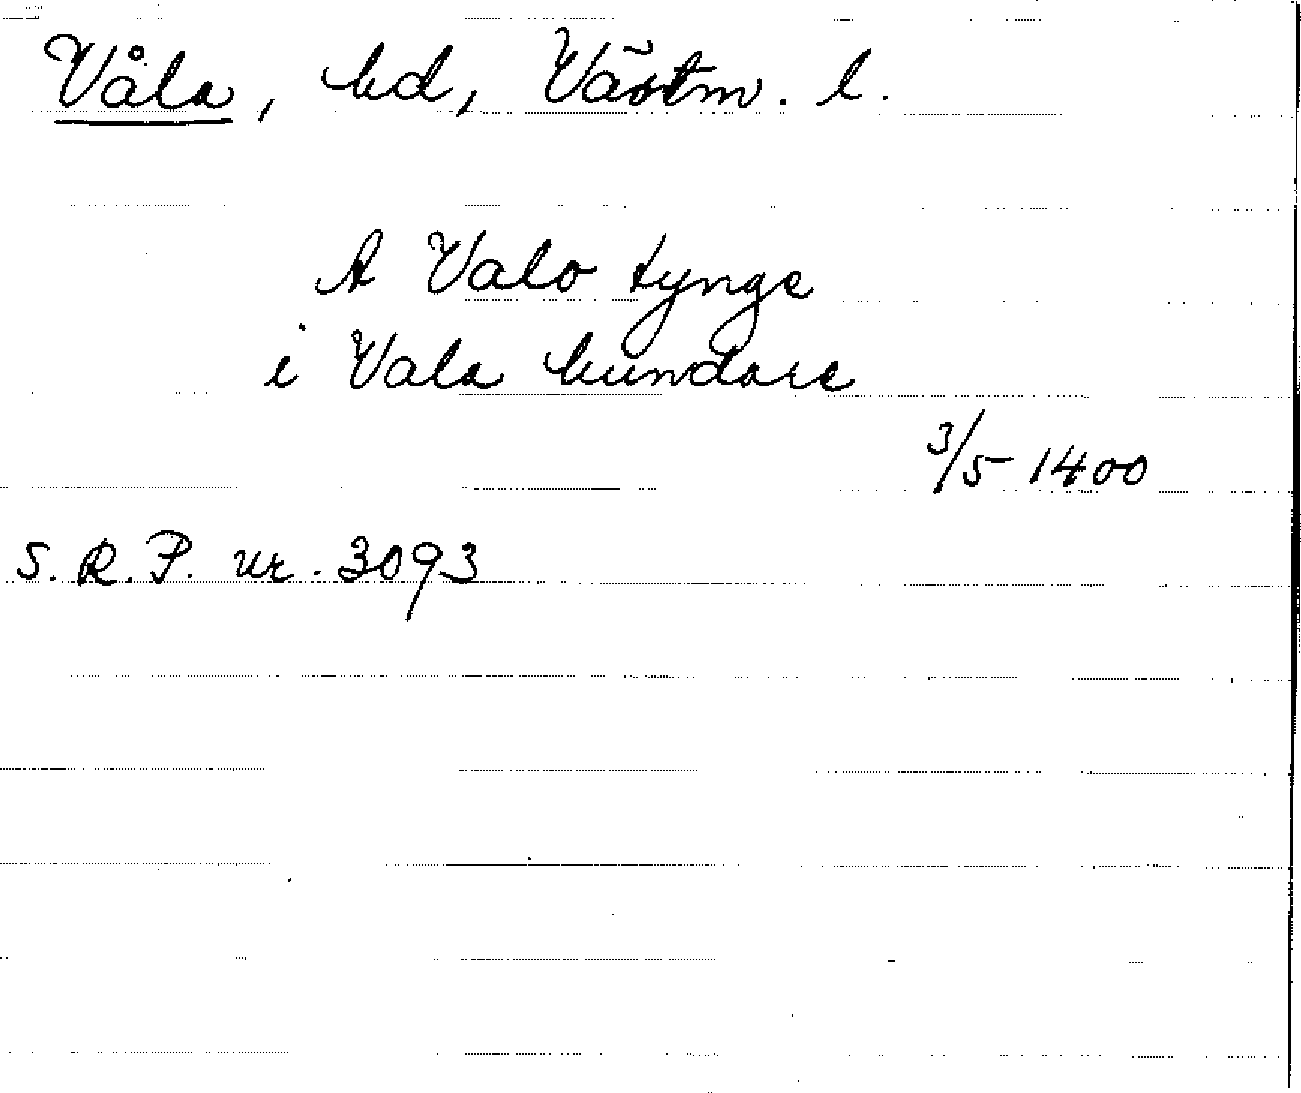 Våla, hd, Västm. l.
A Valo tynge
i Vala hundare
3/5 1400
S. R. P. nr. 3093